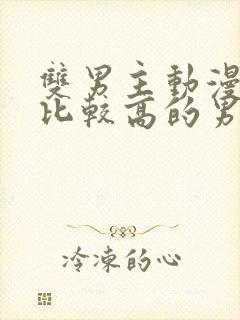 雙男主動漫
比較高的男
冷凍的心